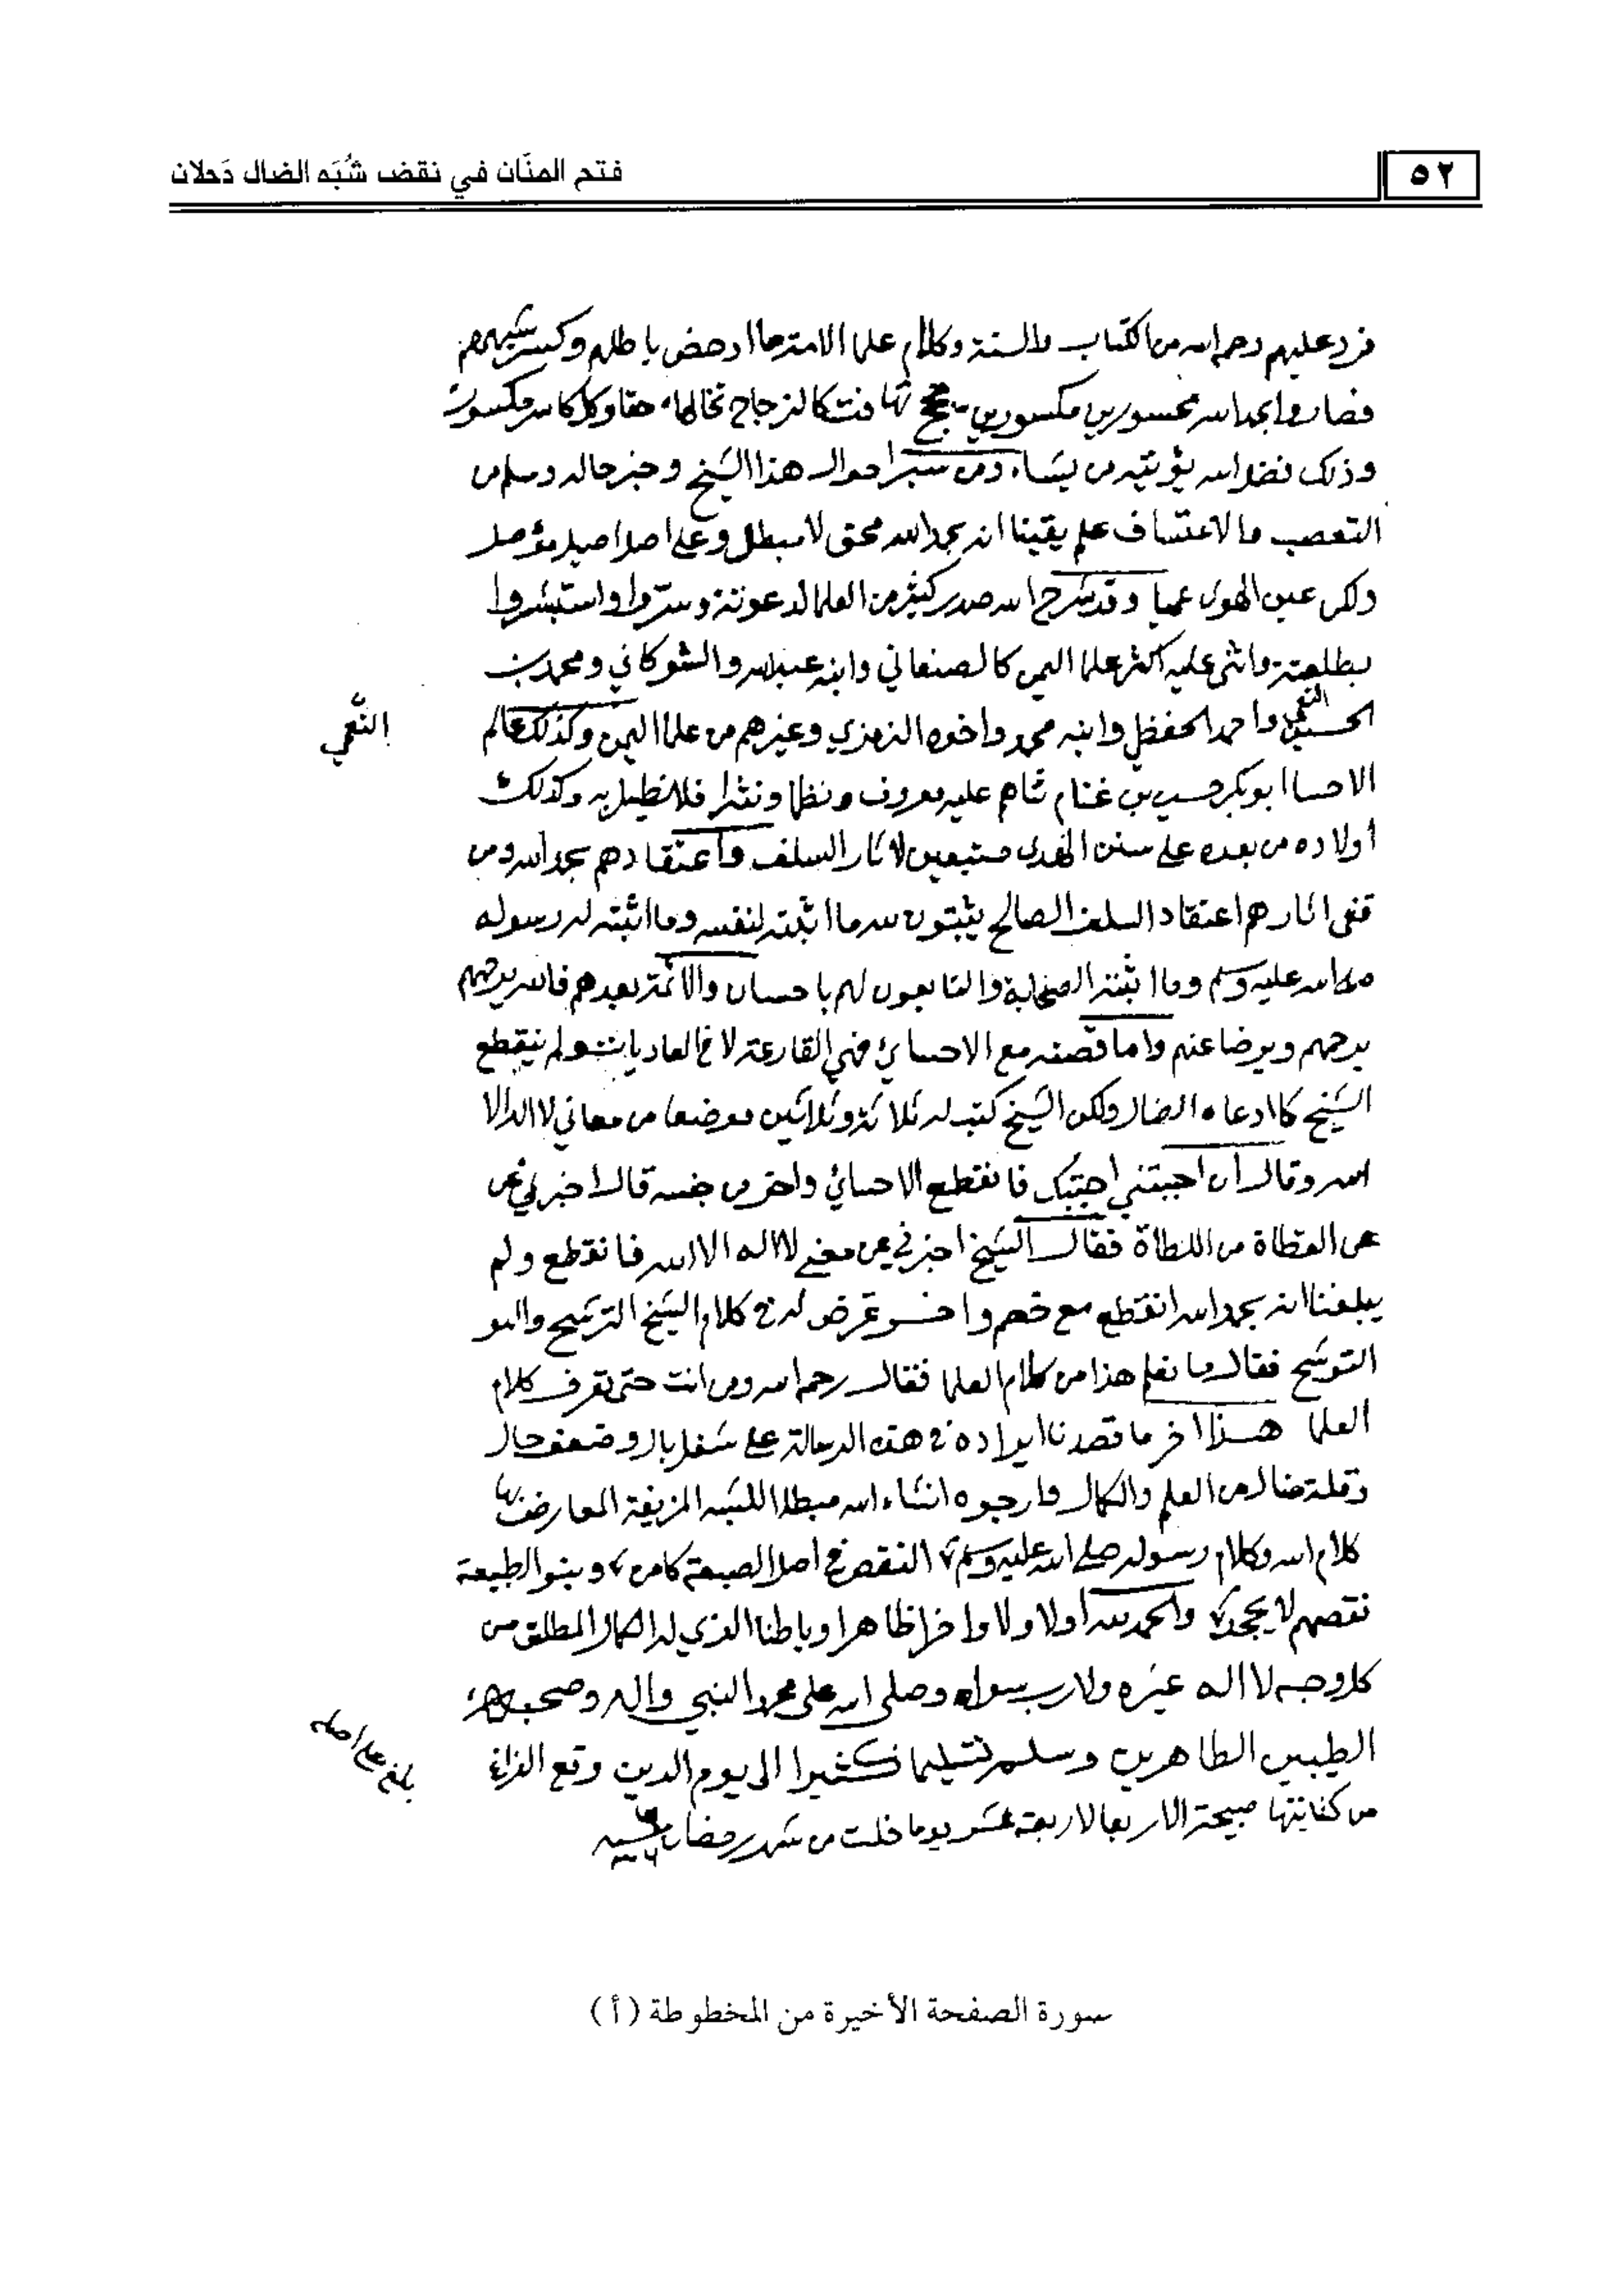 ٥٢
فتح المنَّان في نقض شُبَه الضال دَحلان
فرد عليهم رحمه الله من الكتاب والسنة وكلام علما الامة ما ادحض باطلهم وكسر شبههم
فصاروا بحمد الله محسورين مكسورين حجج تهافت كالزجاج تخالها حقا وكل كاسر مكسور
وذلك فضل الله يؤتيه من يشاء ومن سبر احوال هذا الشيخ وخبر حاله وسلم من
التعصب والاعتساف علم يقينا انه بحمد الله محق لا مبطل وعلى اصل اصيل مؤصل
ولكن عين الهوى عميا وقد شرح الله صدر كثير من العلما لدعوته وسرّوا واستبشروا
بطلعته واثنى عليه اكثر علما اليمن كالصنعاني وابنه عبدالله والشوكاني ومحمد بن
الحسين النعمي واحمد الحفظي وابنه محمد واخوه الزمزي وغيرهم من علما اليمن وكذلك عالم
النّعْمي
الاحسا ابو بكر حسين بن غنام ثناه عليه معروف ونظما ونثرا فلا نطيل به وكذلك
أولاده من بعده على سنن الهدى متبعين لاثار السلف واعتقادهم بحمد الله ومن
قفى اثارهم اعتقاد السلف الصالح يثبتون لله ما اثبته لنفسه وما اثبته له رسوله
صلى الله عليه وسلم وما اثبته الصحابة والتابعون لهم باحسان والائمة بعدهم فالله يرحمهم
يرحمهم ويرضا عنهم واما قصته مع الاحسائي فهي القارعة لا في العاديات ولم ينقطع
الشيخ كما ادعاه الضال ولكن الشيخ كتب له ثلاثة وثلاثين موضعا من معاني لا اله الا
الله وقال ان اجبتني اجبتك فانقطع الاحسائي واخر من جنسه قال اخبرني عن
عن القطاة من اللطاة فقال الشيخ اخبرني عن معنى لا اله الا الله فانقطع ولم
يبلغنا انه بحمد الله انقطع مع خصم واخر عرض له في كلام الشيخ الترشيح والـ
التوشيح فقال ما نعلم هذا من كلام العلما فقال رحمه الله ومن انت حتى تعرف كلام
العلما هذا اخر ما قصدنا ايراده في هذه الرسالة على شغل بال وضعف حال
وقلة من العلم والكمال وارجوه انشاء الله مبطلا للشبه المزيفة المعارض بها
كلام الله وكلام رسوله صلى الله عليه وسلم النقص في اصل الطبيعة كامن وبنو الطبيعة
نقصهم لا يجحد والحمد لله اولا ولا واخرا ظاهرا وباطنا الذي له الكمال المطلق من
كل وجه لا اله غيره ولا رب سواه وصلى الله على محمد النبي واله وصحبه
الطيبين الطاهرين وسلم تسليما كثيرا الى يوم الدين وقع الفراغ
بلغ على اصله
من كتابتها صبيحة الاربعا لاربعة عشر يوما خلت من شهر رمضان
صورة الصفحة الأخيرة من المخطوطة (أ)